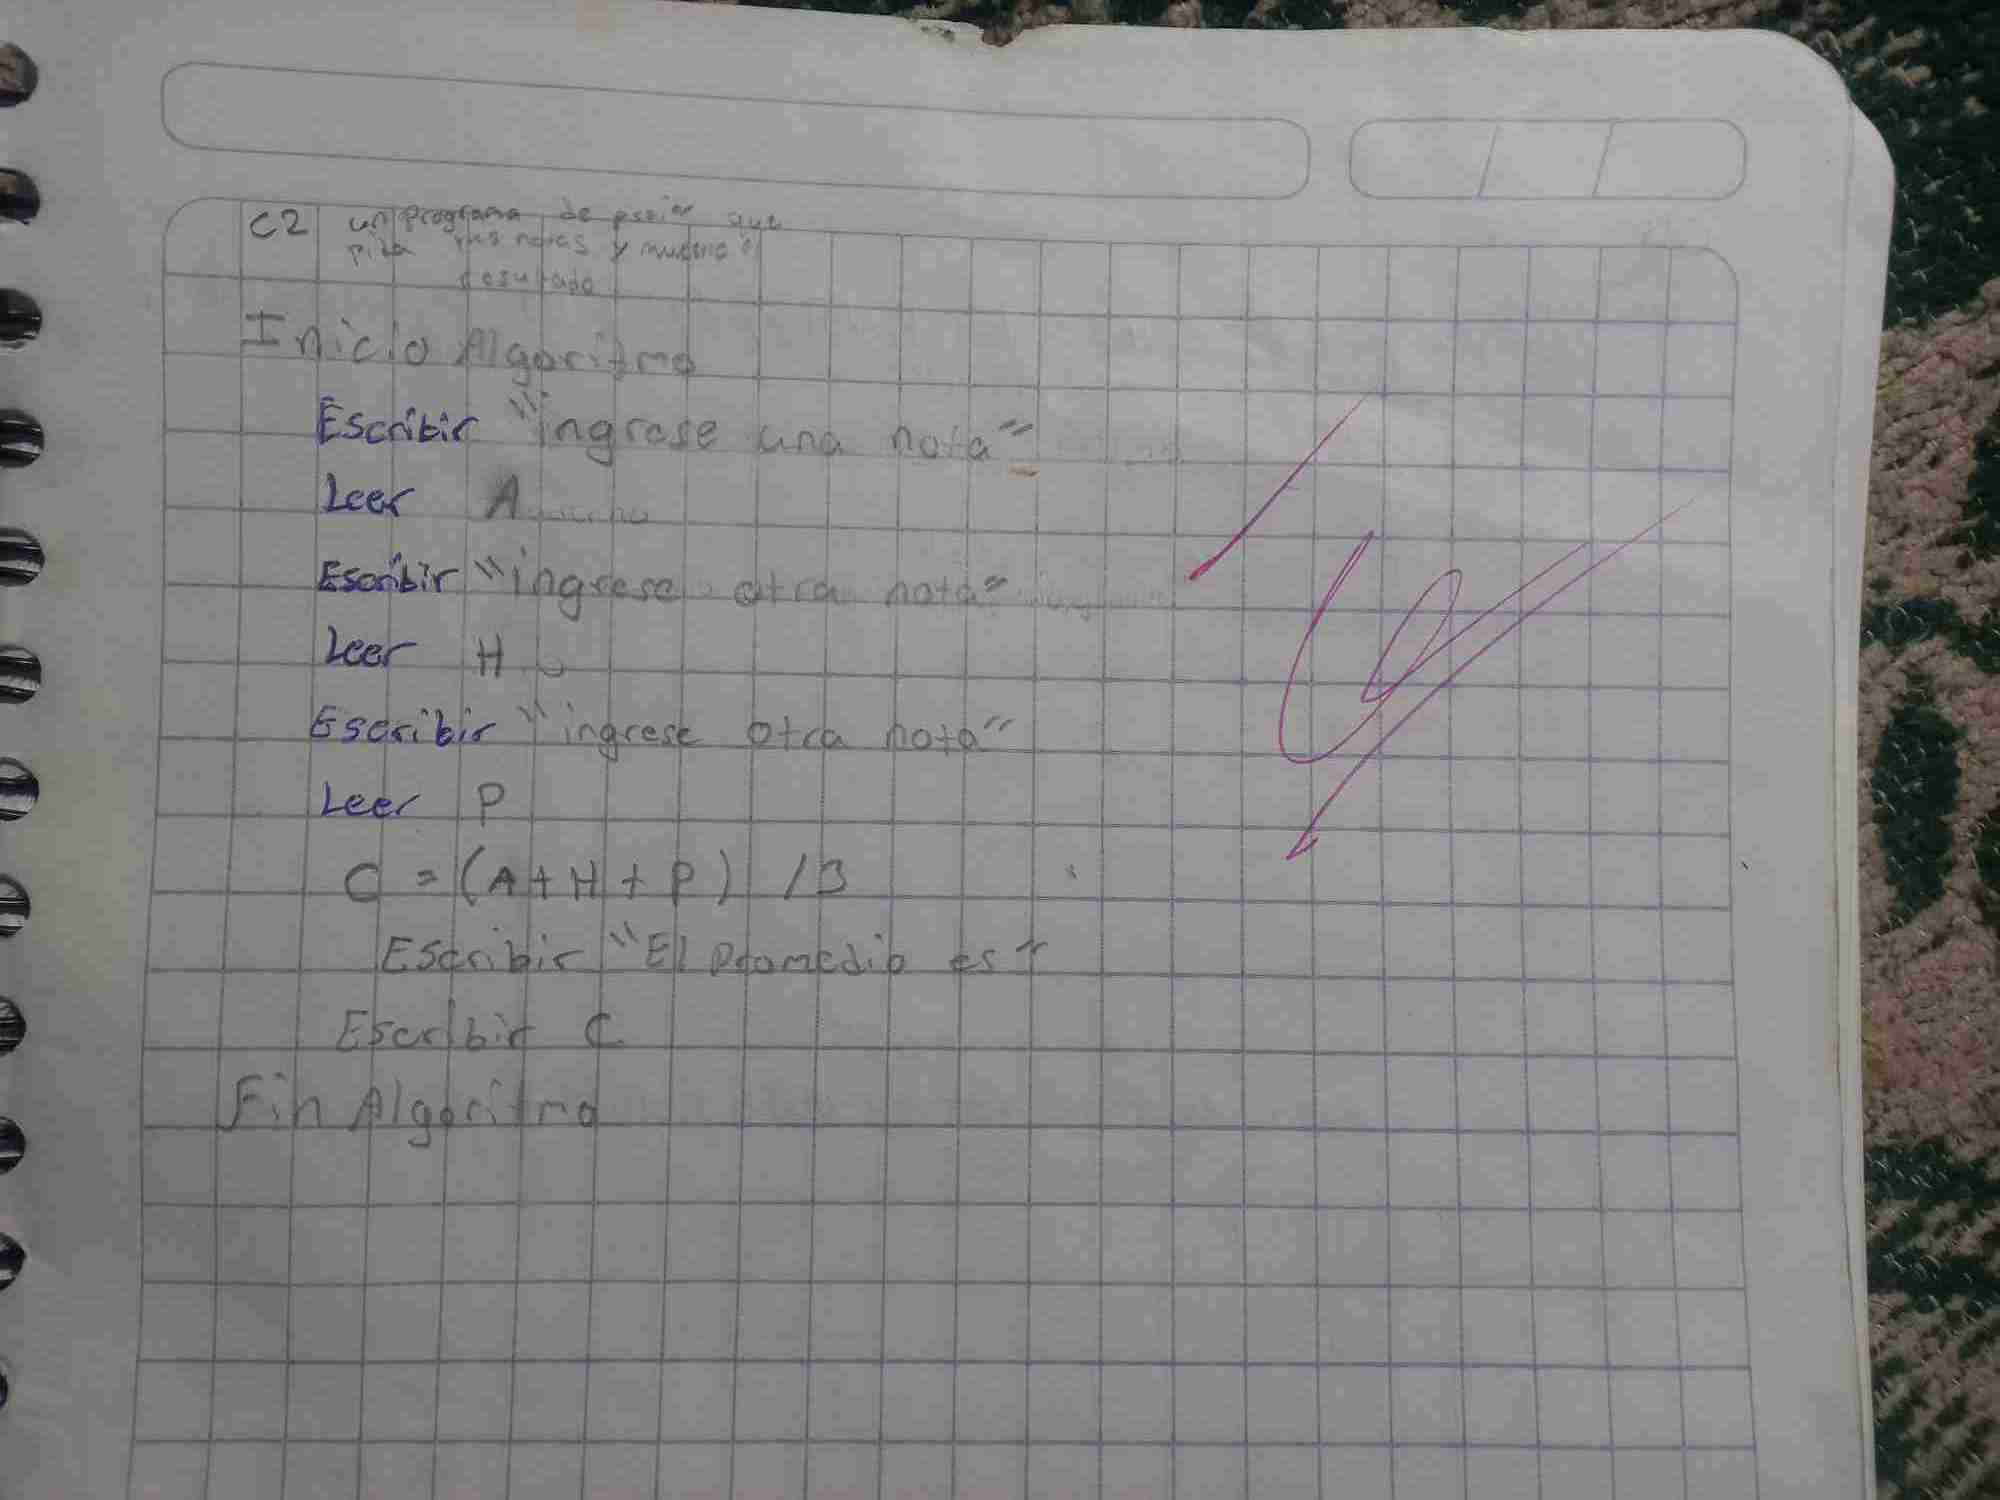 C2 un programa de pseint que
pida tres notas y muestre el
resultado
Inicio Algoritmo
Escribir "ingrese una nota"
Leer A
Escribir "ingrese otra nota"
Leer H
Escribir "ingrese otra nota"
Leer P
C = (A + H + P) / 3
Escribir "El promedio es"
Escribir C
Fin Algoritmo